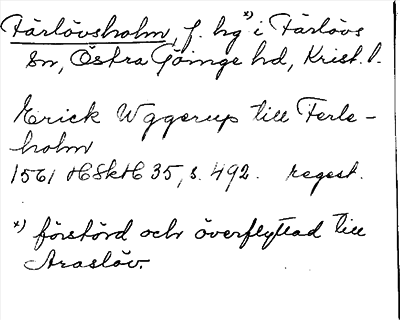 Färlövsholm, f. hg *) i Färlövs
sn, Östra Göinge hd, Krist. l.
Erick Uggerup till Ferle-
holm
1561 HSkH 35, s. 492. regest.
*) förstörd och överflyttad till
Araslöv.